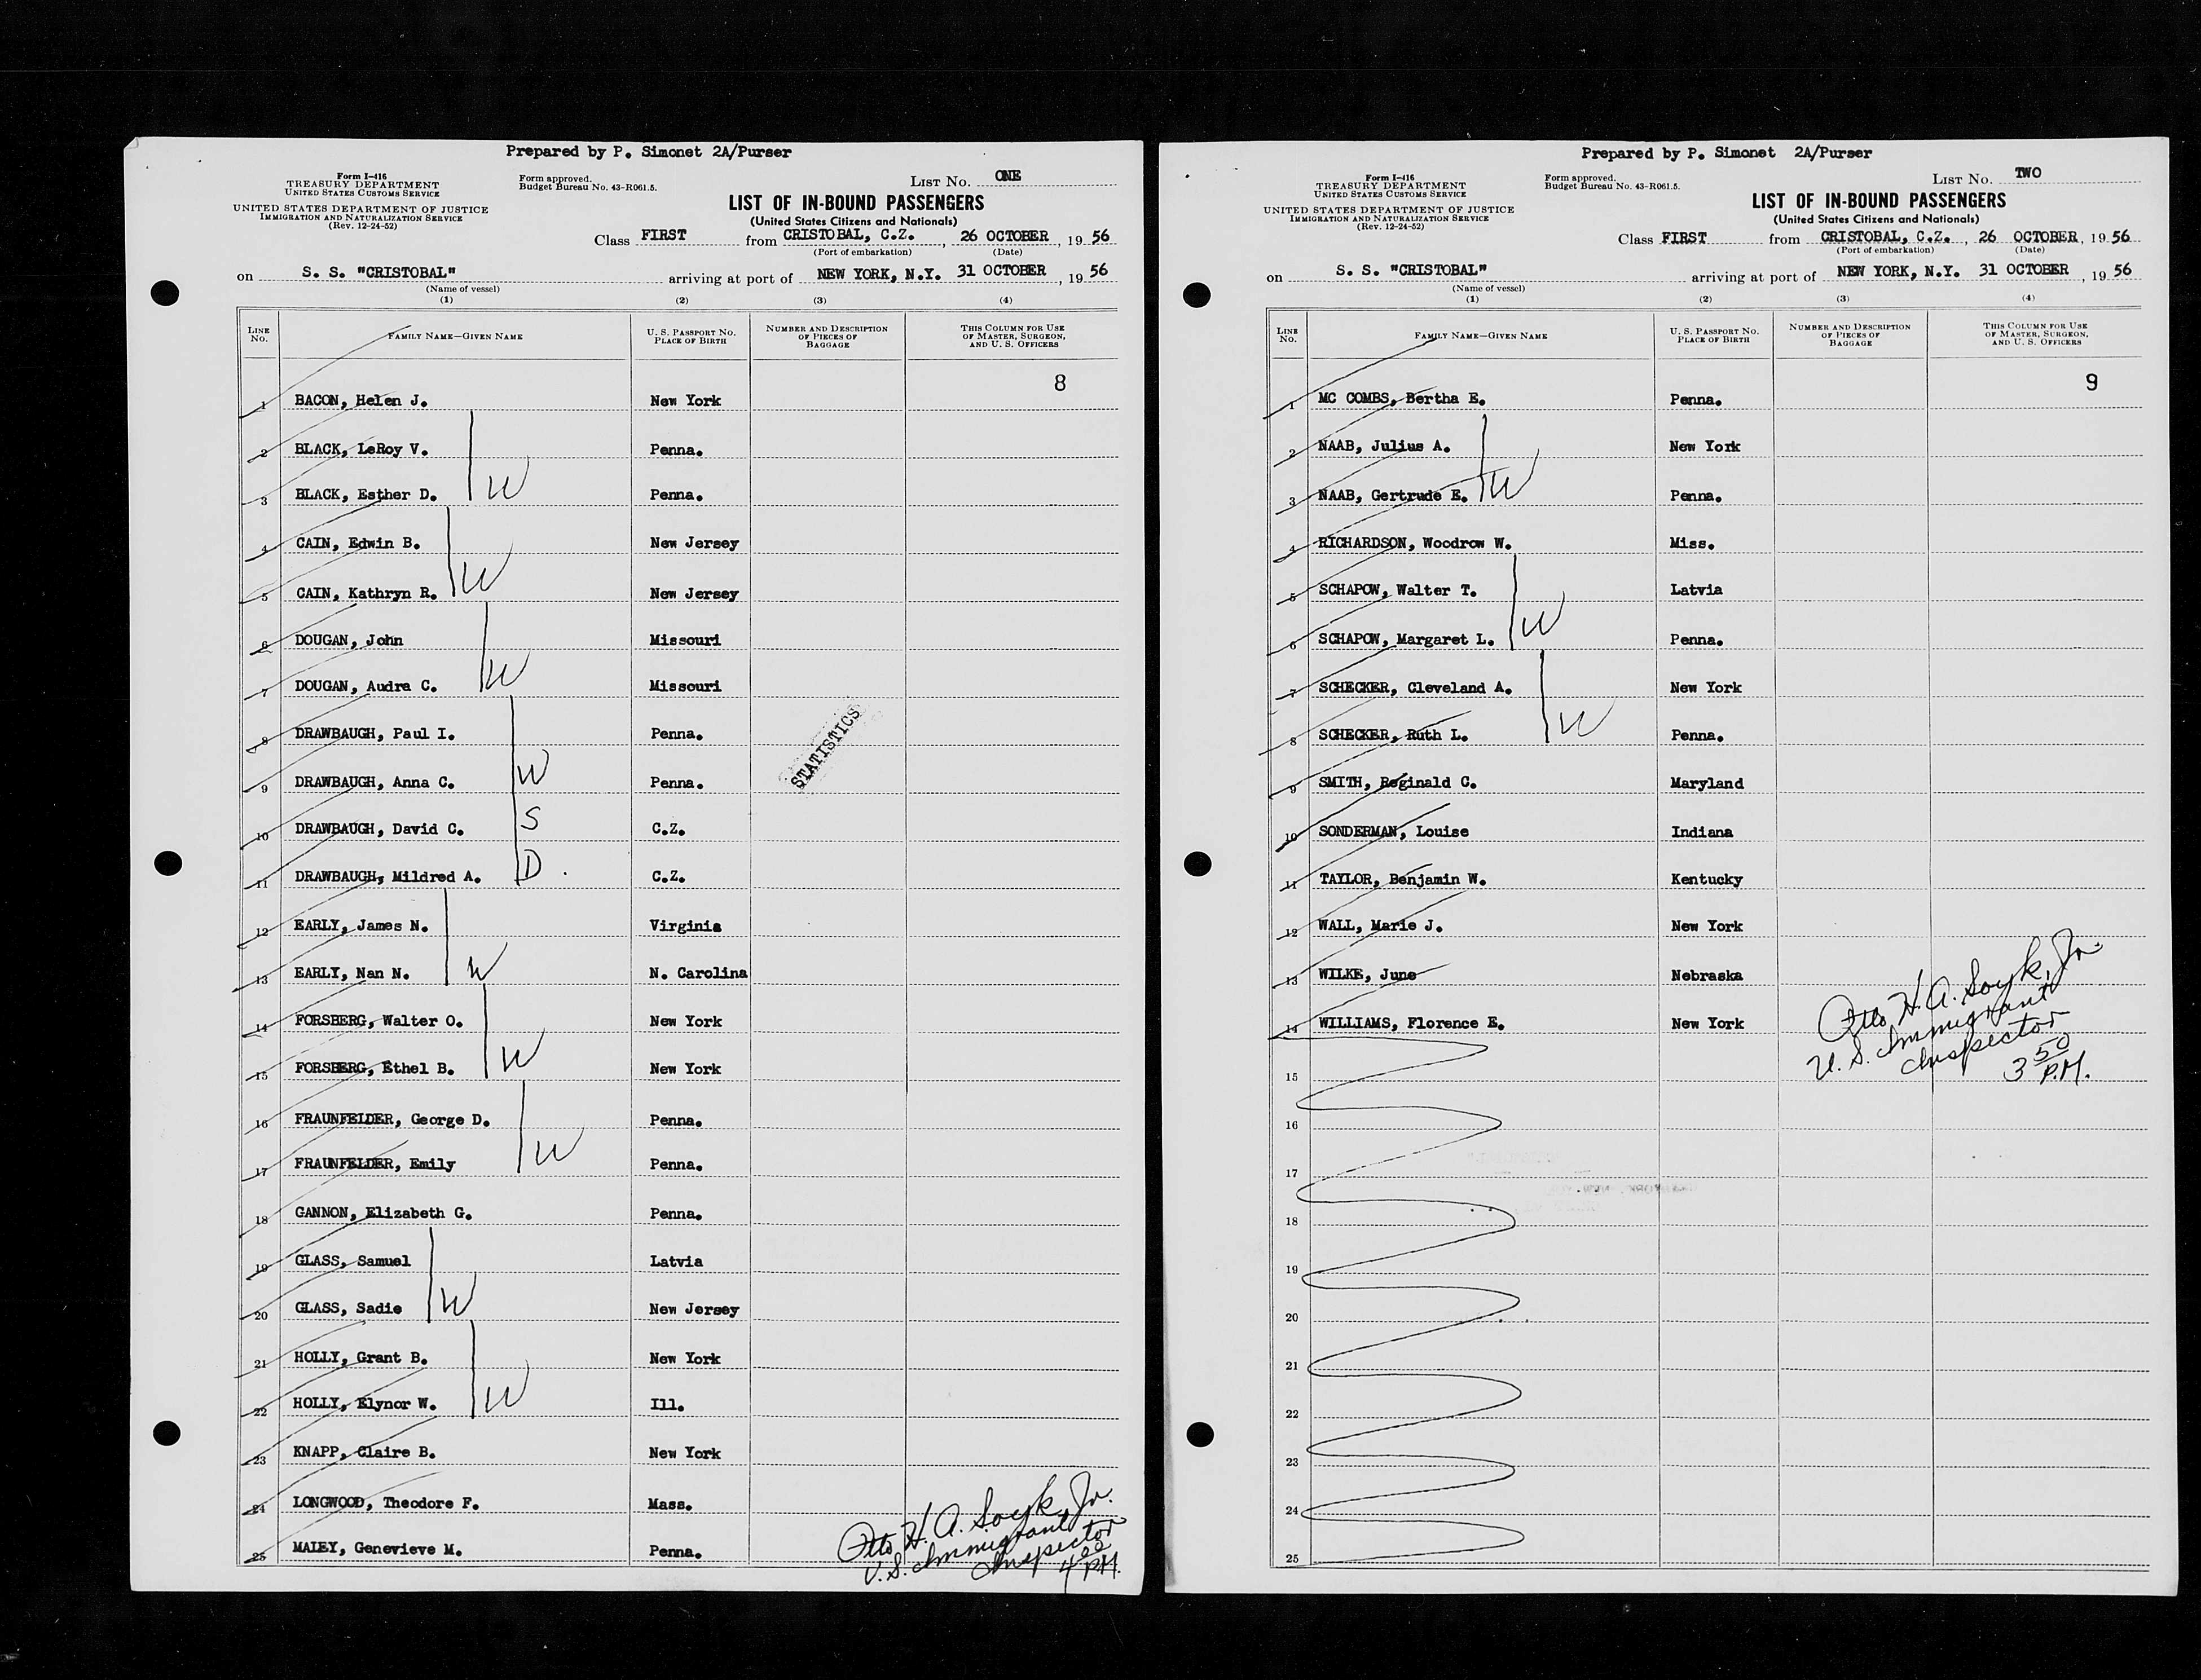 Prepared by P. Simonet 2A/Purser
Form I-416
TREASURY DEPARTMENT
UNITED STATES CUSTOMS SERVICE
UNITED STATES DEPARTMENT OF JUSTICE
IMMIGRATION AND NATURALIZATION SERVICE
(Rev. 12-24-52)
Form approved.
Budget Bureau No. 43-R061.5.
LIST NO. ONE
LIST OF IN-BOUND PASSENGERS
(United States Citizens and Nationals)
Class FIRST from CRISTOBAL, C.Z., 26 OCTOBER, 1956
(Port of embarkation) (Date)
on S. S. "CRISTOBAL" arriving at port of NEW YORK, N.Y. 31 OCTOBER, 1956
(Name of vessel)
(1) (2) (3) (4)
LINE NO. FAMILY NAME—GIVEN NAME U. S. PASSPORT NO. PLACE OF BIRTH NUMBER AND DESCRIPTION OF PIECES OF BAGGAGE THIS COLUMN FOR USE OF MASTER, SURGEON, AND U. S. OFFICERS
8
1 BACON, Helen J. New York
2 BLACK, LeRoy V. Penna.
3 BLACK, Esther D. W Penna.
4 CAIN, Edwin B. New Jersey
5 CAIN, Kathryn R. W New Jersey
6 DOUGAN, John Missouri
7 DOUGAN, Audra C. W Missouri
8 DRAWBAUGH, Paul I. Penna.
STATISTICS
9 DRAWBAUGH, Anna C. W Penna.
10 DRAWBAUGH, David C. S C.Z.
11 DRAWBAUGH, Mildred A. D. C.Z.
12 EARLY, James N. Virginia
13 EARLY, Nan N. W N. Carolina
14 FORSBERG, Walter O. New York
15 FORSBERG, Ethel B. W New York
16 FRAUNFELDER, George D. Penna.
17 FRAUNFELDER, Emily W Penna.
18 GANNON, Elizabeth G. Penna.
19 GLASS, Samuel Latvia
20 GLASS, Sadie W New Jersey
21 HOLLY, Grant B. New York
22 HOLLY, Elynor W. W Ill.
23 KNAPP, Claire B. New York
24 LONGWOOD, Theodore F. Mass.
25 MALEY, Genevieve M. Penna.
Otto H. A. Soyk, Jr.
U.S. Immigrant
Inspector
4 00 P.M.
Prepared by P. Simonet 2A/Purser
Form I-416
TREASURY DEPARTMENT
UNITED STATES CUSTOMS SERVICE
UNITED STATES DEPARTMENT OF JUSTICE
IMMIGRATION AND NATURALIZATION SERVICE
(Rev. 12-24-52)
Form approved.
Budget Bureau No. 43-R061.5.
LIST NO. TWO
LIST OF IN-BOUND PASSENGERS
(United States Citizens and Nationals)
Class FIRST from CRISTOBAL, C.Z., 26 OCTOBER, 1956
(Port of embarkation) (Date)
on S. S. "CRISTOBAL" arriving at port of NEW YORK, N.Y. 31 OCTOBER, 1956
(Name of vessel)
(1) (2) (3) (4)
LINE NO. FAMILY NAME—GIVEN NAME U. S. PASSPORT NO. PLACE OF BIRTH NUMBER AND DESCRIPTION OF PIECES OF BAGGAGE THIS COLUMN FOR USE OF MASTER, SURGEON, AND U. S. OFFICERS
9
1 MC COMBS, Bertha E. Penna.
2 NAAB, Julius A. New York
3 NAAB, Gertrude E. W Penna.
4 RICHARDSON, Woodrow W. Miss.
5 SCHAPOW, Walter T. Latvia
6 SCHAPOW, Margaret L. W Penna.
7 SCHECKER, Cleveland A. New York
8 SCHECKER, Ruth L. W Penna.
9 SMITH, Reginald C. Maryland
10 SONDERMAN, Louise Indiana
11 TAYLOR, Benjamin W. Kentucky
12 WALL, Marie J. New York
13 WILKE, June Nebraska
14 WILLIAMS, Florence E. New York
Otto H. A. Soyk, Jr.
U. S. Immigrant
Inspector
3 50 P.M.
15
16
17
18
19
20
21
22
23
24
25